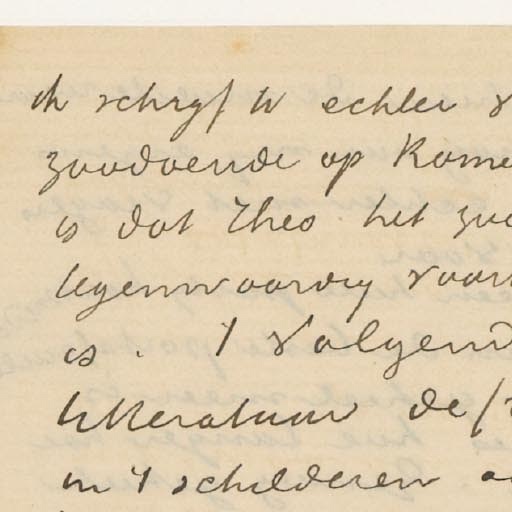 Ik schryf U echter v
zoodoende op kome
is dat Theo het zoo
tegenwoordig voor
is. 't Volgend
litteratuur de
in 't schilderen